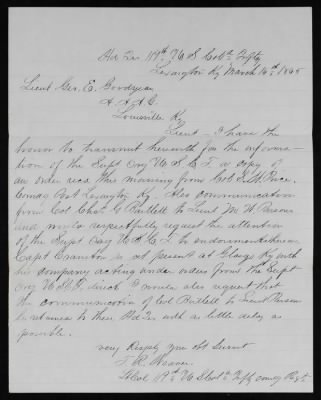 Hd Qrs 119th U S Cold Infty
Lexington Ky March 16th 1865
Lieut Geo. E. Goodyear
A. A. A. G.
Louisville Ky
Lieut - I have the
honor to transmit herewith for the informa-
tion of the Supt Org U S C T a copy of
an order recd this morning from Col S. W. Price
Comdg Post Lexington Ky. Also communication
from Col Chas. G Bartlett to Lieut M. W.
and would respectfully request the attention
of the Supt Org U S C T to endorsement thereon
Capt Cranston is at present at Glasgow Ky with
his company acting under orders from the Supt
Org U S C T, which I would also request that
the communication of Col Bartlett to Lieut
be returned to these Hd Qrs with as little delay as
possible.
very Respty Your Obt Servt
T. R. Weaver
Lt Col 119th U S Cold Infty comdg Regt